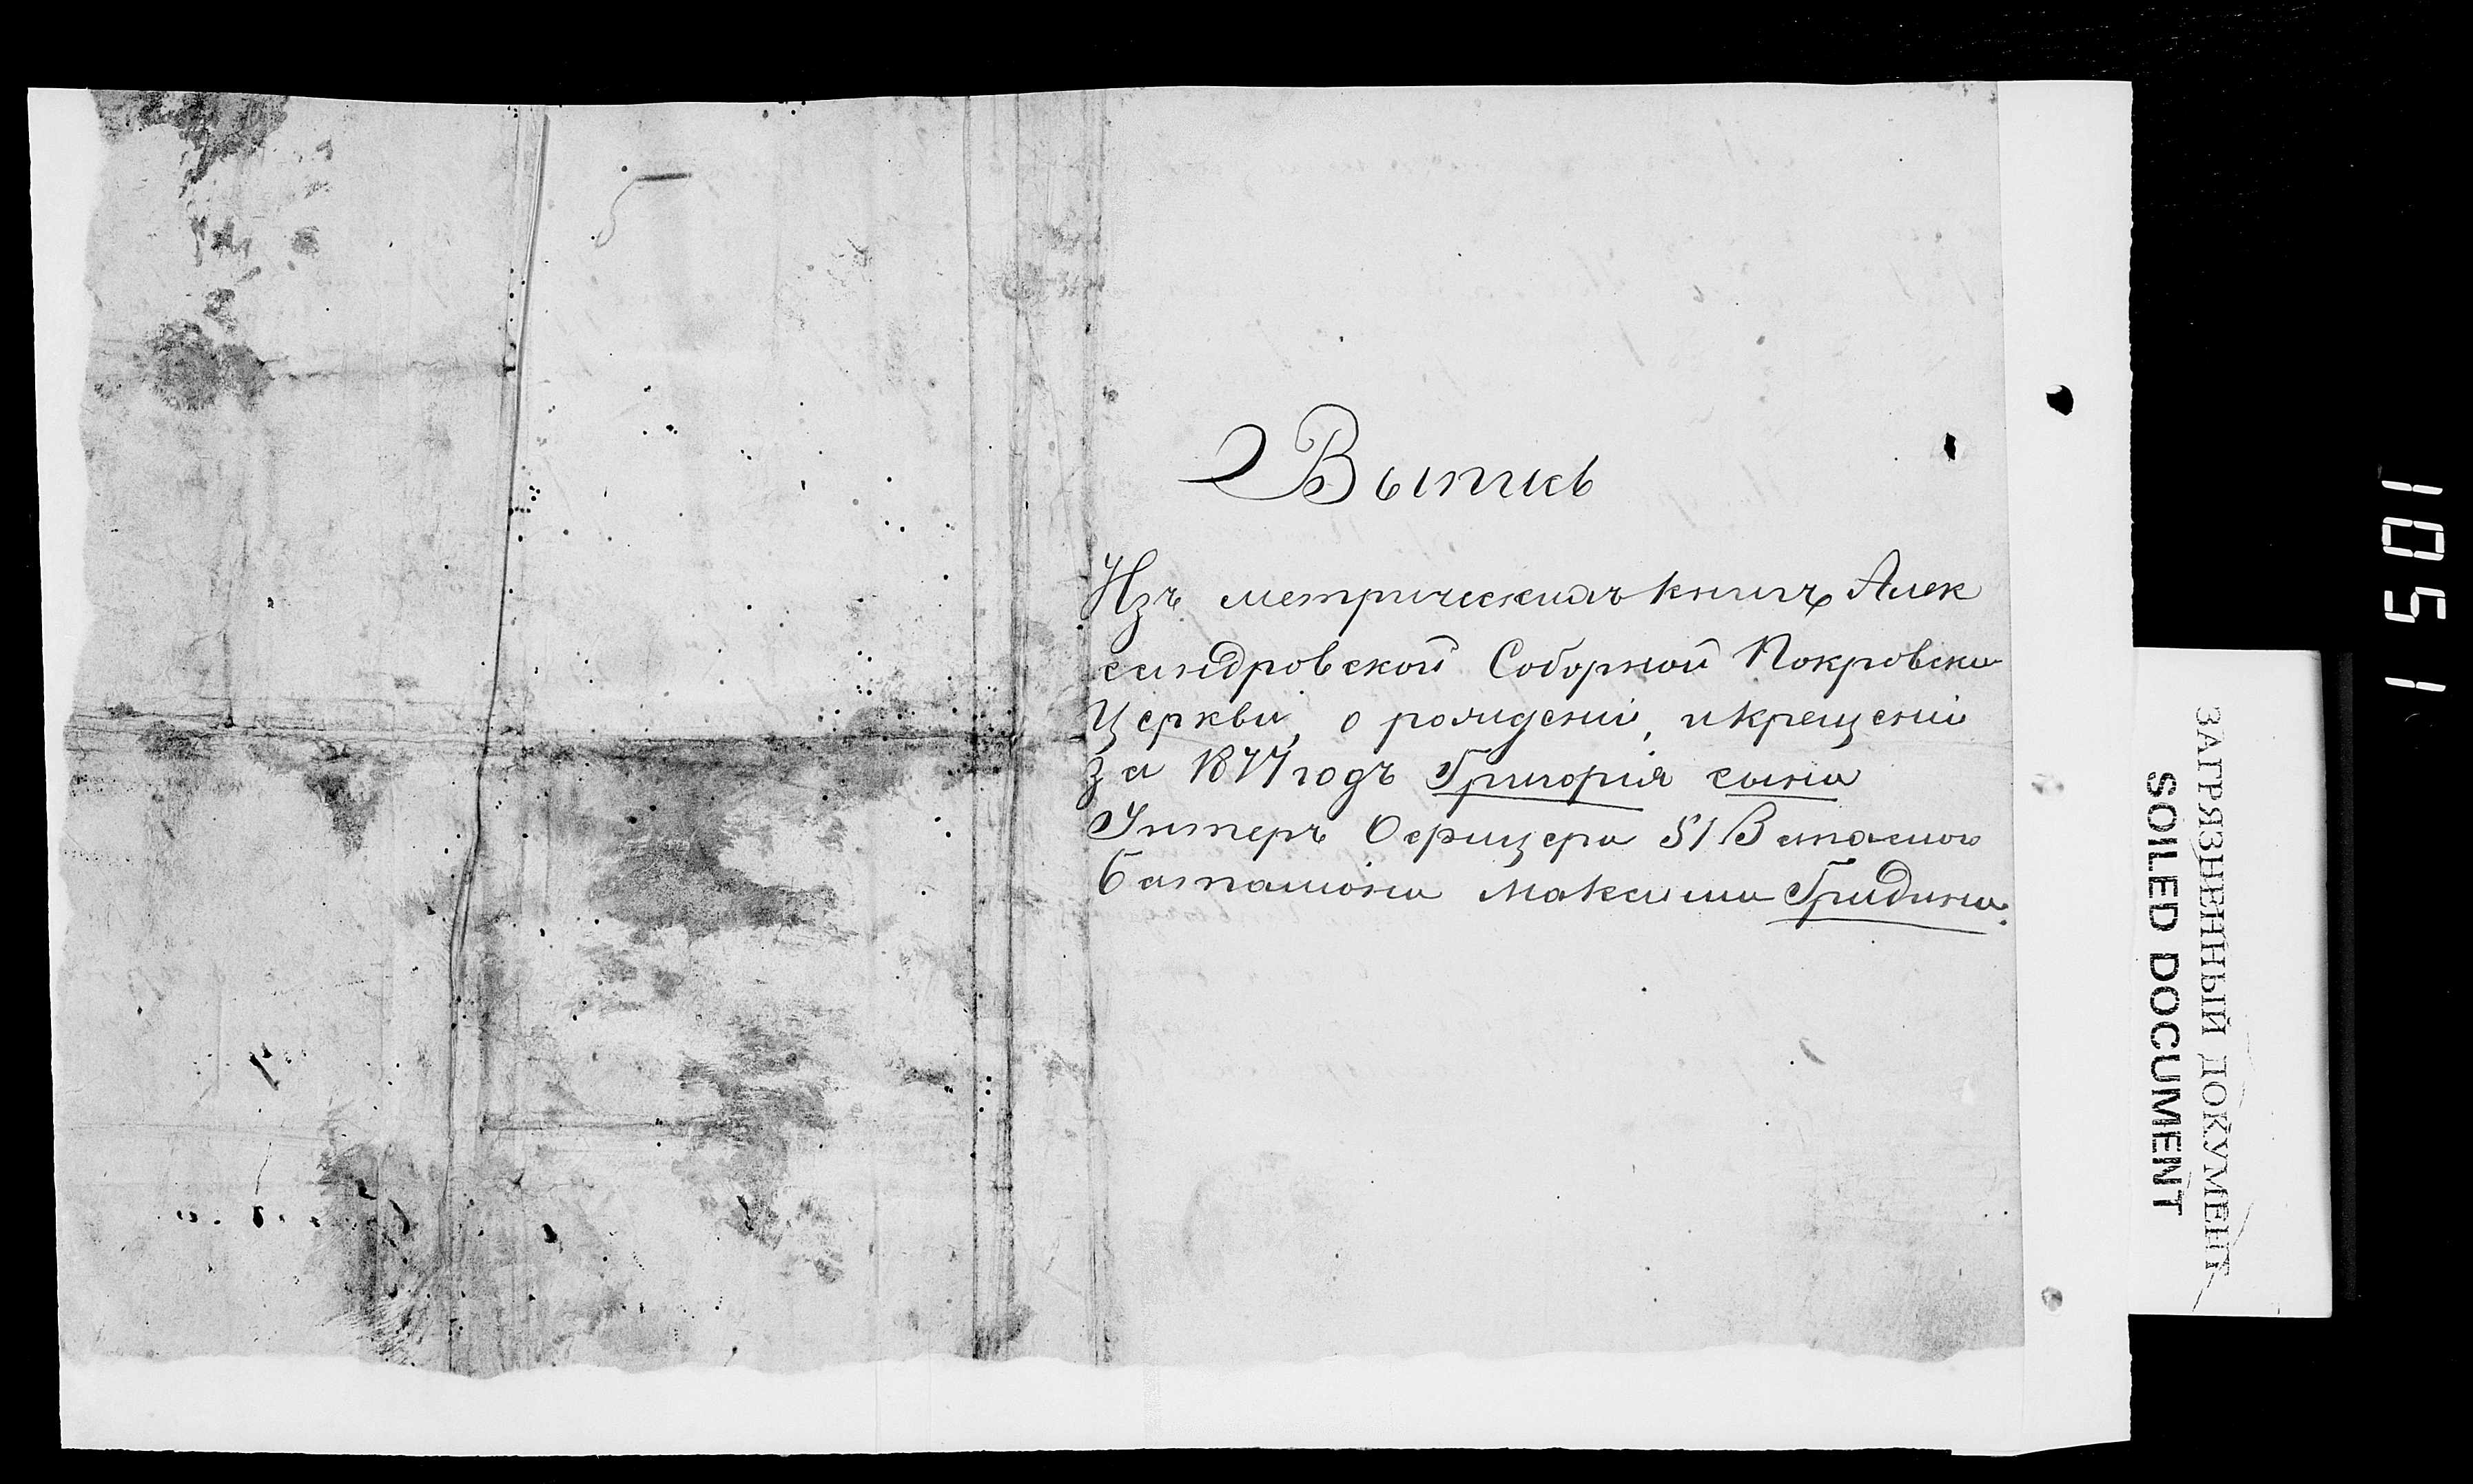 Выпись
Изъ метрическихъ книгъ Алек
сандровской Соборной Покровско
Церкви, о рождении, и крещении
За 1877 годъ Григория сына
Унтеръ Офицера 51
баталиона Максима Гридина.
ЗАГРЯЗНЕННЫЙ ДОКУМЕНТ
SOILED DOCUMENT
1051